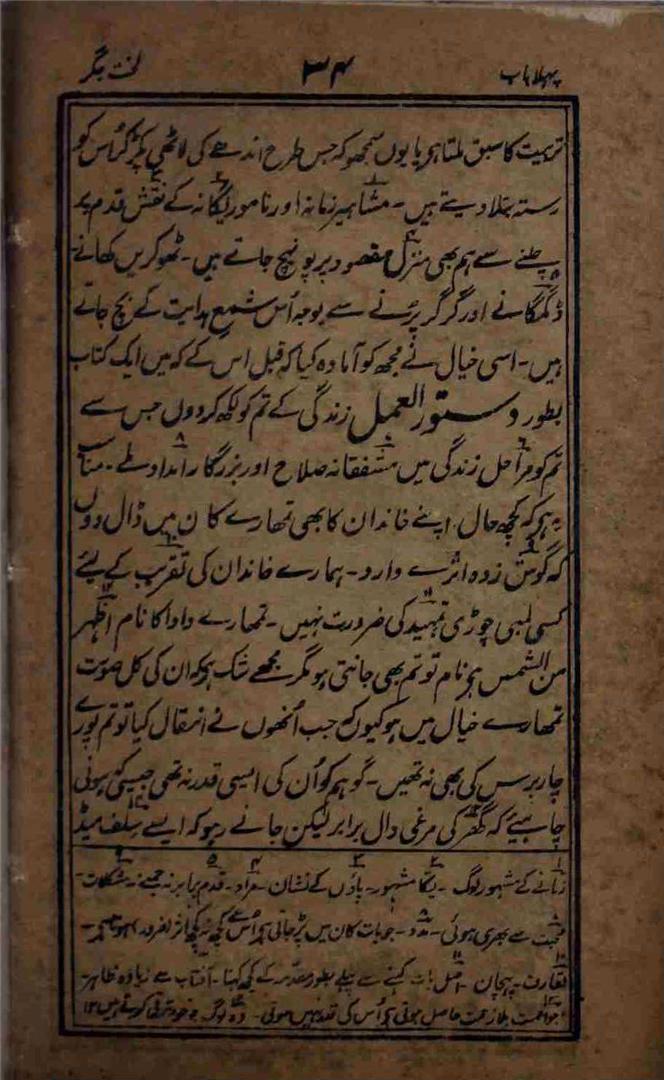 پہلا باب ۳۴ لخت جگر
تربیت کا سبق ملتا ہے یا یوں سمجھو کہ جس طرح اندھے کی لاٹھی پکڑ کر اُس کو
رستہ بتلا دیتے ہیں۔ مشاہیر زمانہ اور نامور یگانہ کے نقش قدم پر
چلنے سے ہم بھی منزل مقصود پر پونہچ جاتے ہیں۔ ٹھوکریں کھانے
ڈگمگانے اور گر گر پڑنے سے بوجہ اُس شمع ہدایت کے بچ جاتے
ہیں۔ اسی خیال نے مجھ کو آمادہ کیا کہ قبل اس کے کہ میں ایک کتاب
بطور دستور العمل زندگی کے تم کو لکھ کر دوں جس سے
تم کو مراحل زندگی میں مشفقانہ صلاح اور بزرگانہ امداد ملے۔ مناسب
یہ ہے کہ کچھ حال اپنے خاندان کا بھی تمھارے کان میں ڈال دوں
کہ گوش زدہ اثرے دارد۔ ہمارے خاندان کی تقریب کے لیے
کسی لمبی چوڑی تمہید کی ضرورت نہیں۔ تمھارے دادا کا نام اظہر
من الشمس ہے نام تو تم بھی جانتی ہو مگر مجھے شک ہے کہ ان کی کل صورت
تمھارے خیال میں ہو کیوں کہ جب اُنھوں نے انتقال کیا تو تم پورے
چار برس کی بھی نہ تھیں۔ گو ہم کو اُن کی ایسی قدر نہ تھی جیسی کہ ہونی
چاہیئے کہ گھر کی مرغی دال برابر لیکن جانے رہو کہ ایسے سلف میڈ
۱ زمانے کے مشہور لوگ ۔ ۲ یکتا مشہور۔ ۳ پاؤں کے نشان۔ ۴ مراد۔ ۵ قدم برابر نہ جمنے۔ ۶ مشکلات۔
۷ محبت سے بھری ہوئی۔ ۸ مدد۔ ۹ جو بات کان میں پڑ جاتی ہے اُس سے کچھ نہ کچھ اثر ضرور ہوتا ہے۔
۱۰ تعارف۔ پہچان۔ ۱۱ اصل بات کہنے سے پہلے بطور مقدمہ کے کچھ کہنا۔ ۱۲ آفتاب سے زیادہ ظاہر۔
۱۳ جو نعمت بلا زحمت حاصل ہوتی ہے اُس کی قدر نہیں ہوتی۔ ۱۴ وہ لوگ جو خود ترقی کرتے ہیں ۱۲